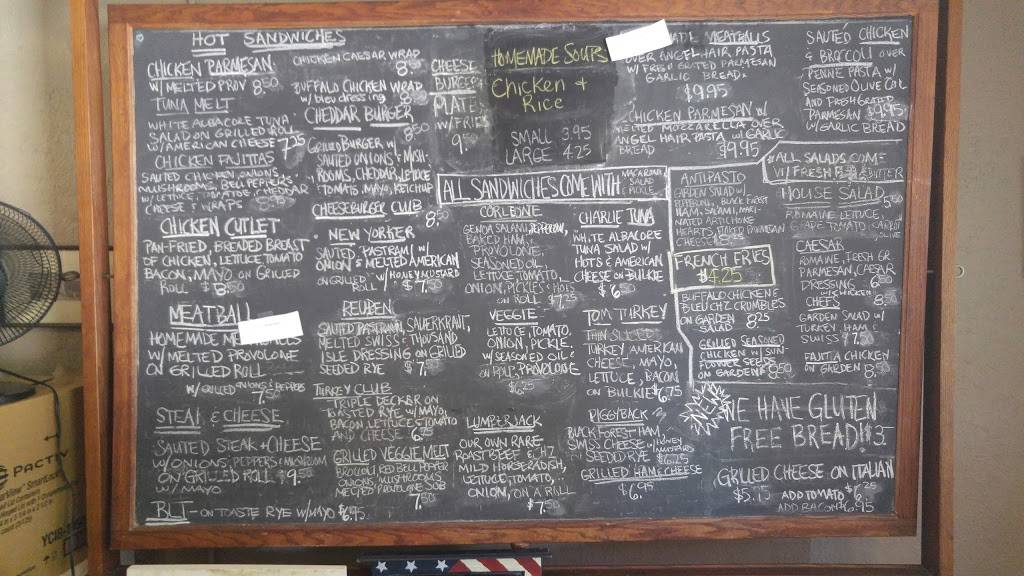 HOT SANDWICHES
CHICKEN PARMESAN
W/ MELTED PROV 8.50
TUNA MELT
WHITE ALBACORE TUNA
SALAD ON GRILLED ROLL
W/ AMERICAN CHEESE 7.25
CHICKEN FAJITAS
SAUTED CHICKEN, ONIONS
MUSHROOMS, BELL PEPPERS
CHEESE & WRAPS
CHICKEN CUTLET
PAN-FRIED, BREADED BREAST
OF CHICKEN, LETTUCE, TOMATO
BACON, MAYO ON GRILLED
ROLL
MEATBALL
HOMEMADE
W/ MELTED PROVOLONE
ON GRILLED ROLL
W/ GRILLED ONIONS & PEPPERS
7.50
STEAK & CHEESE
SAUTED STEAK & CHEESE
W/ ONIONS, PEPPERS & MUSHROOM
ON GRILLED ROLL $9.
W/ MAYO
BLT - ON TOASTE RYE W/ MAYO $6.95
CHICKEN CAESAR WRAP
8.50
BUFFALO CHICKEN WRAP
W/ bleu dressing 8.50
CHEDDAR BURGER
8.50
GRILLED BURGER W/
SAUTED ONIONS & MUSH-
ROOMS, CHEDDAR, LETTUCE
TOMATO, MAYO, KETCHUP
CHEESEBURGER CLUB
8.50
NEW YORKER
SAUTED PASTRAMI W/
ONION & MELTED AMERICAN
ON GRILLED ROLL W/ HONEY MUSTARD
$7.
REUBEN
SAUTED PASTRAMI, SAUERKRAUT,
MELTED SWISS & THOUSAND
ISLE DRESSING ON GRILLED
SEEDED RYE $7.
TURKEY CLUB
TRIPLE DECKER ON
TOASTED RYE W/ MAYO,
BACON, LETTUCE & TOMATO
AND CHEESE
GRILLED VEGGIE MELT
BROCCOLI, RED BELL PEPPER
ONIONS, MUSHROOMS &
MELTED PROVOLONE
7.
CHEESE
BURGER
PLATE
W/ FRIES
9.
HOMEMADE SOUPS
Chicken &
Rice
SMALL 3.95
LARGE 4.25
ALL SANDWICHES COME WITH
CORLEONE
GENOA SALAMI, PEPPERONI,
BAKED HAM,
PROVOLONE
SEASONED OIL
LETTUCE, TOMATO,
ONION, PICKLES & HOTS
ON ROLL $7.25
VEGGIE
LETTUCE, TOMATO,
ONION, PICKLE
W/ SEASONED OIL &
PROVOLONE
LUMBERJACK
OUR OWN RARE
ROAST BEEF 6 HZ
MILD HORSERADISH,
LETTUCE, TOMATO,
ONION, ON A ROLL
CHARLIE TUNA
WHITE ALBACORE
TUNA SALAD W/
HOTS & AMERICAN
CHEESE ON BULKIE
$6.
TOM TURKEY
THIN SLICED
TURKEY, AMERICAN
CHEESE, MAYO,
LETTUCE, BACON
ON BULKIE $6.75
PIGGYBACK
BLACK FOREST HAM,
SWISS CHEESE, HONEY
MUSTARD
SEEDED RYE
GRILLED HAM & CHEESE
$6.95
MEATBALLS
OVER ANGEL HAIR PASTA
W/ FRESH GRATED PARMESAN
GARLIC BREAD
$9.95
CHICKEN PARMESAN W/
MELTED MOZZARELLA OVER
ANGEL HAIR PASTA W/ GARLIC
BREAD $9.95
SAUTED CHICKEN
& BROCCOLI OVER
PENNE PASTA W/
SEASONED OLIVE OIL
AND FRESH GRATED
PARMESAN $9.95
W/ GARLIC BREAD
*ALL SALADS COME
W/ FRESH BUTTER
ANTIPASTO
GARDEN SALAD W/
PEPPERONI, BLACK FOREST
HAM, SALAMI,
ARTICHOKE
HEARTS,
FRENCH FRIES
$4.25
BUFFALO CHICKEN
BLEU CHEESE CRUMBLES
ON GARDEN
SALAD 8.25
GRILLED SEASONED
CHICKEN W/ SUN
FLOWER SEEDS
ON GARDEN 8.50
HOUSE SALAD
5.50
ROMAINE LETTUCE,
GRAPE TOMATO, CARROT
CAESAR
ROMAINE, FRESH GR
PARMESAN, CAESAR
DRESSING 6.
CHICKEN
GARDEN SALAD W/
TURKEY, HAM
SWISS 7.50
FAJITA CHICKEN
ON GARDEN 8.
WE HAVE GLUTEN
FREE BREAD!!!
GRILLED CHEESE ON ITALIAN
ADD TOMATO $6.
ADD BACON $6.95
PACTIV